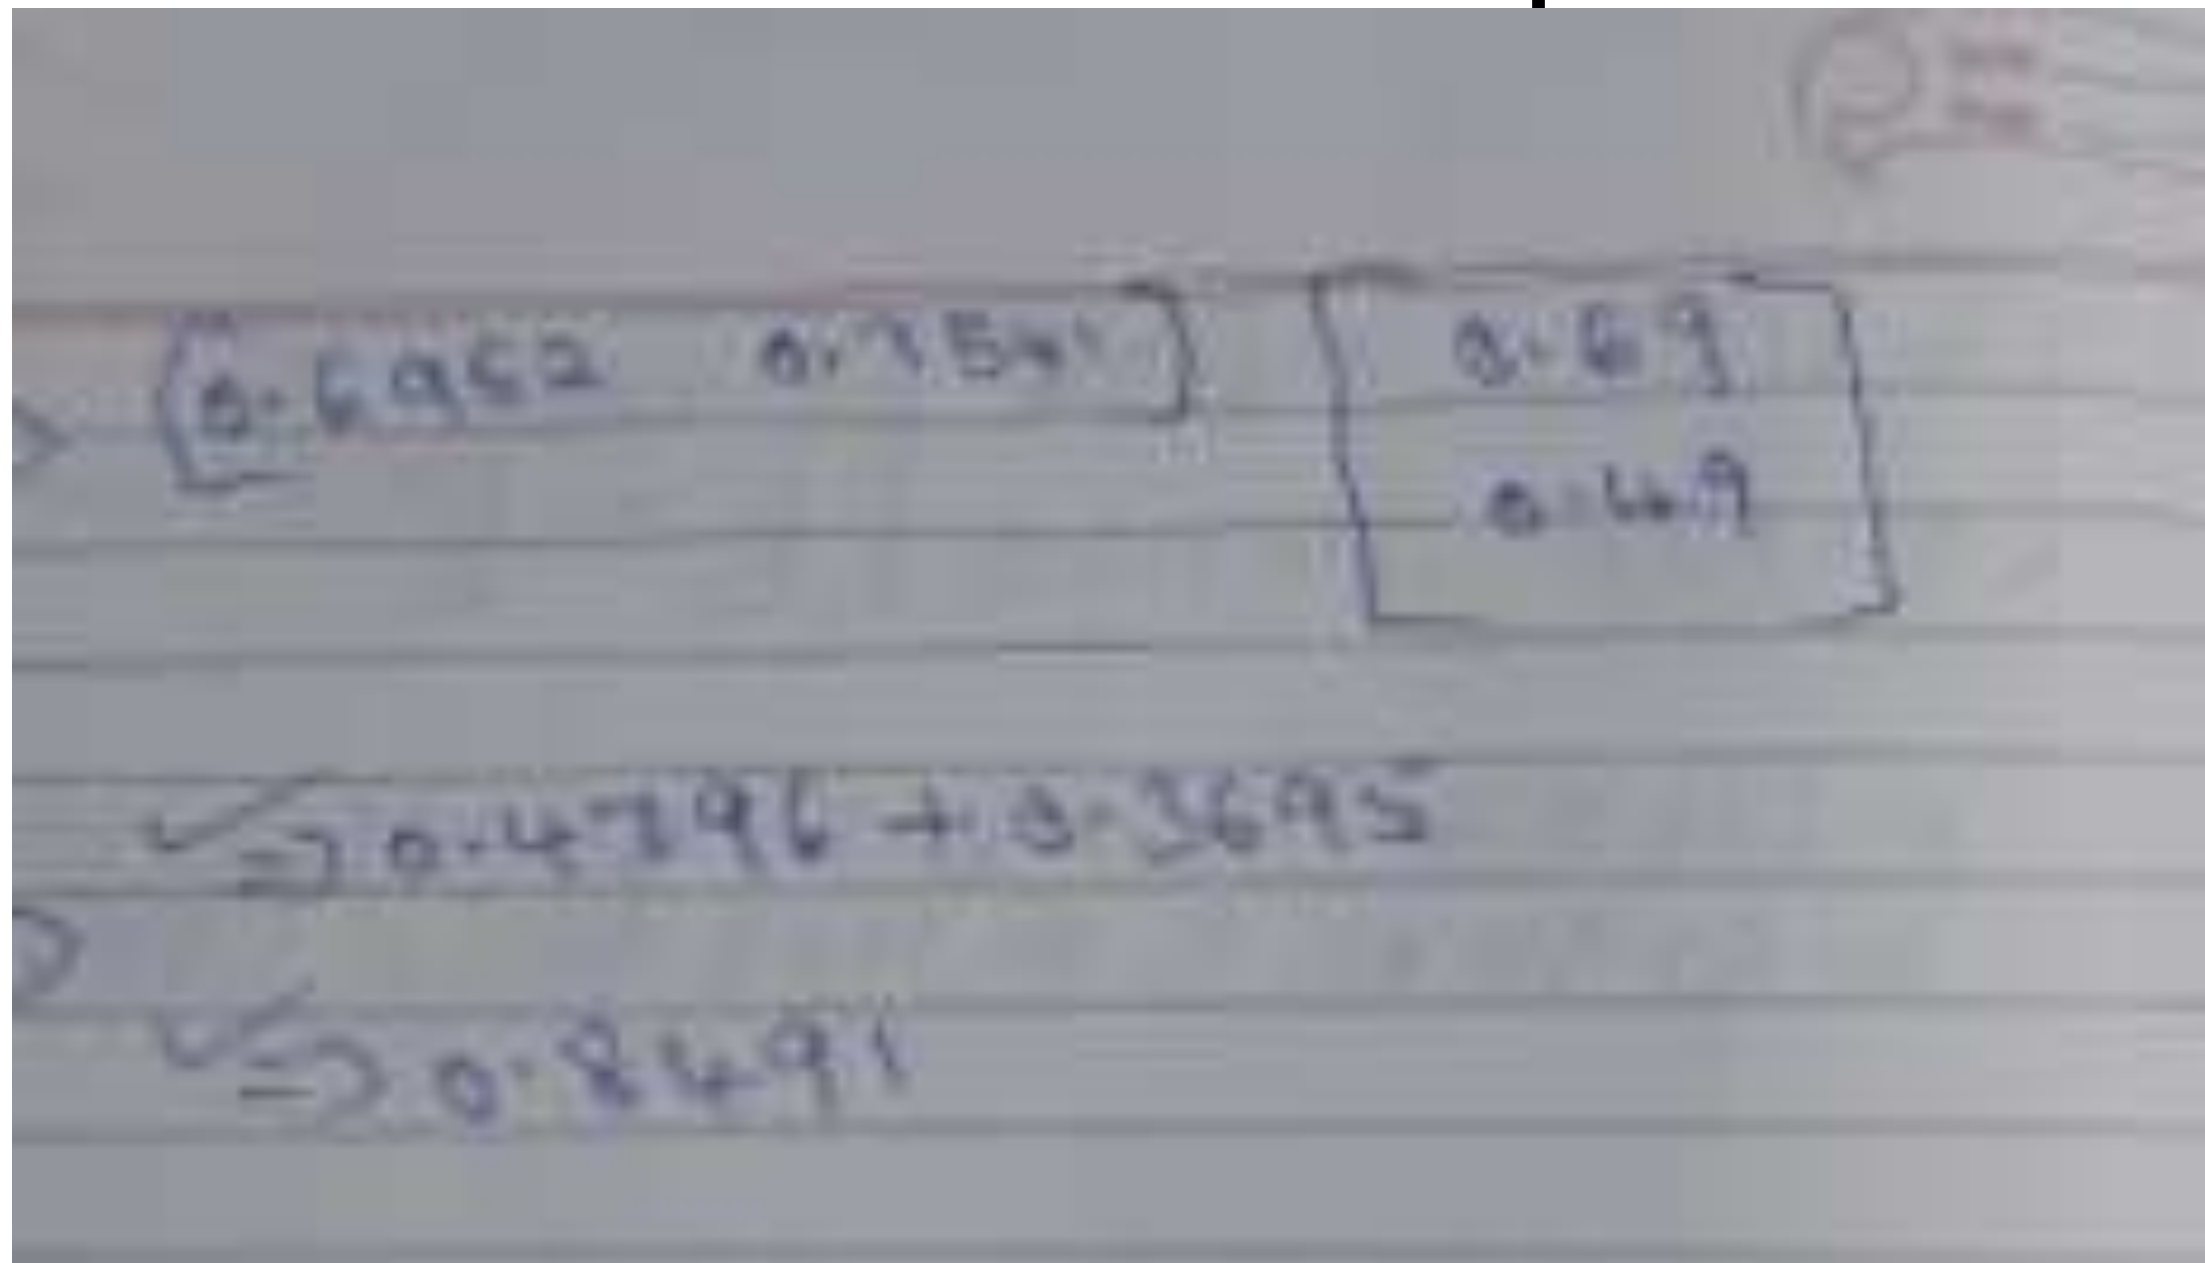 [0.6952 0.7541] [0.69
0.49]
=> 0.4796 + 0.3695
=> 0.8491